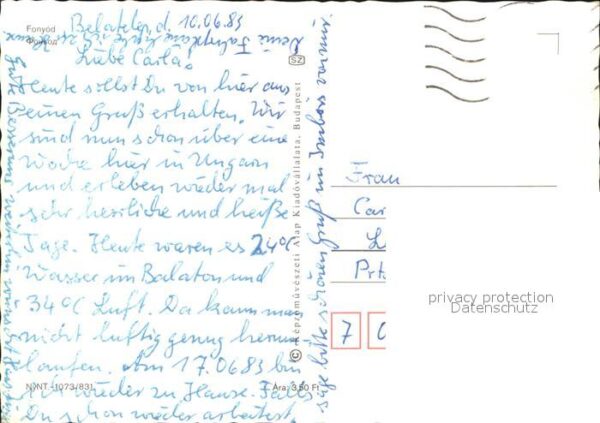 Fonyód
Balaton
Belatelep, d. 10.06.83
Liebe Carla!
Heute sollst Du von hier aus
einen Gruß erhalten. Wir
sind nun schon über eine
Woche hier in Ungarn
und erleben wieder mal
sehr herrliche und heiße
Tage. Heute waren es 24°C
Wasser im Balaton und
34°C Luft. Da kann man
nicht luftig genug herum
laufen. Am 17.06.83 bin
ich wieder zu Hause. Falls
Du schon wieder arbeitest,
sage bitte schönen Gruß im
Deine Fahrpläne
SZ
© Képzőművészeti Alap Kiadóvállalata, Budapest
Frau
Car
L
Prt.
7
privacy protection
Datenschutz
NYNT -1073/831
Ára: 3,50 Ft